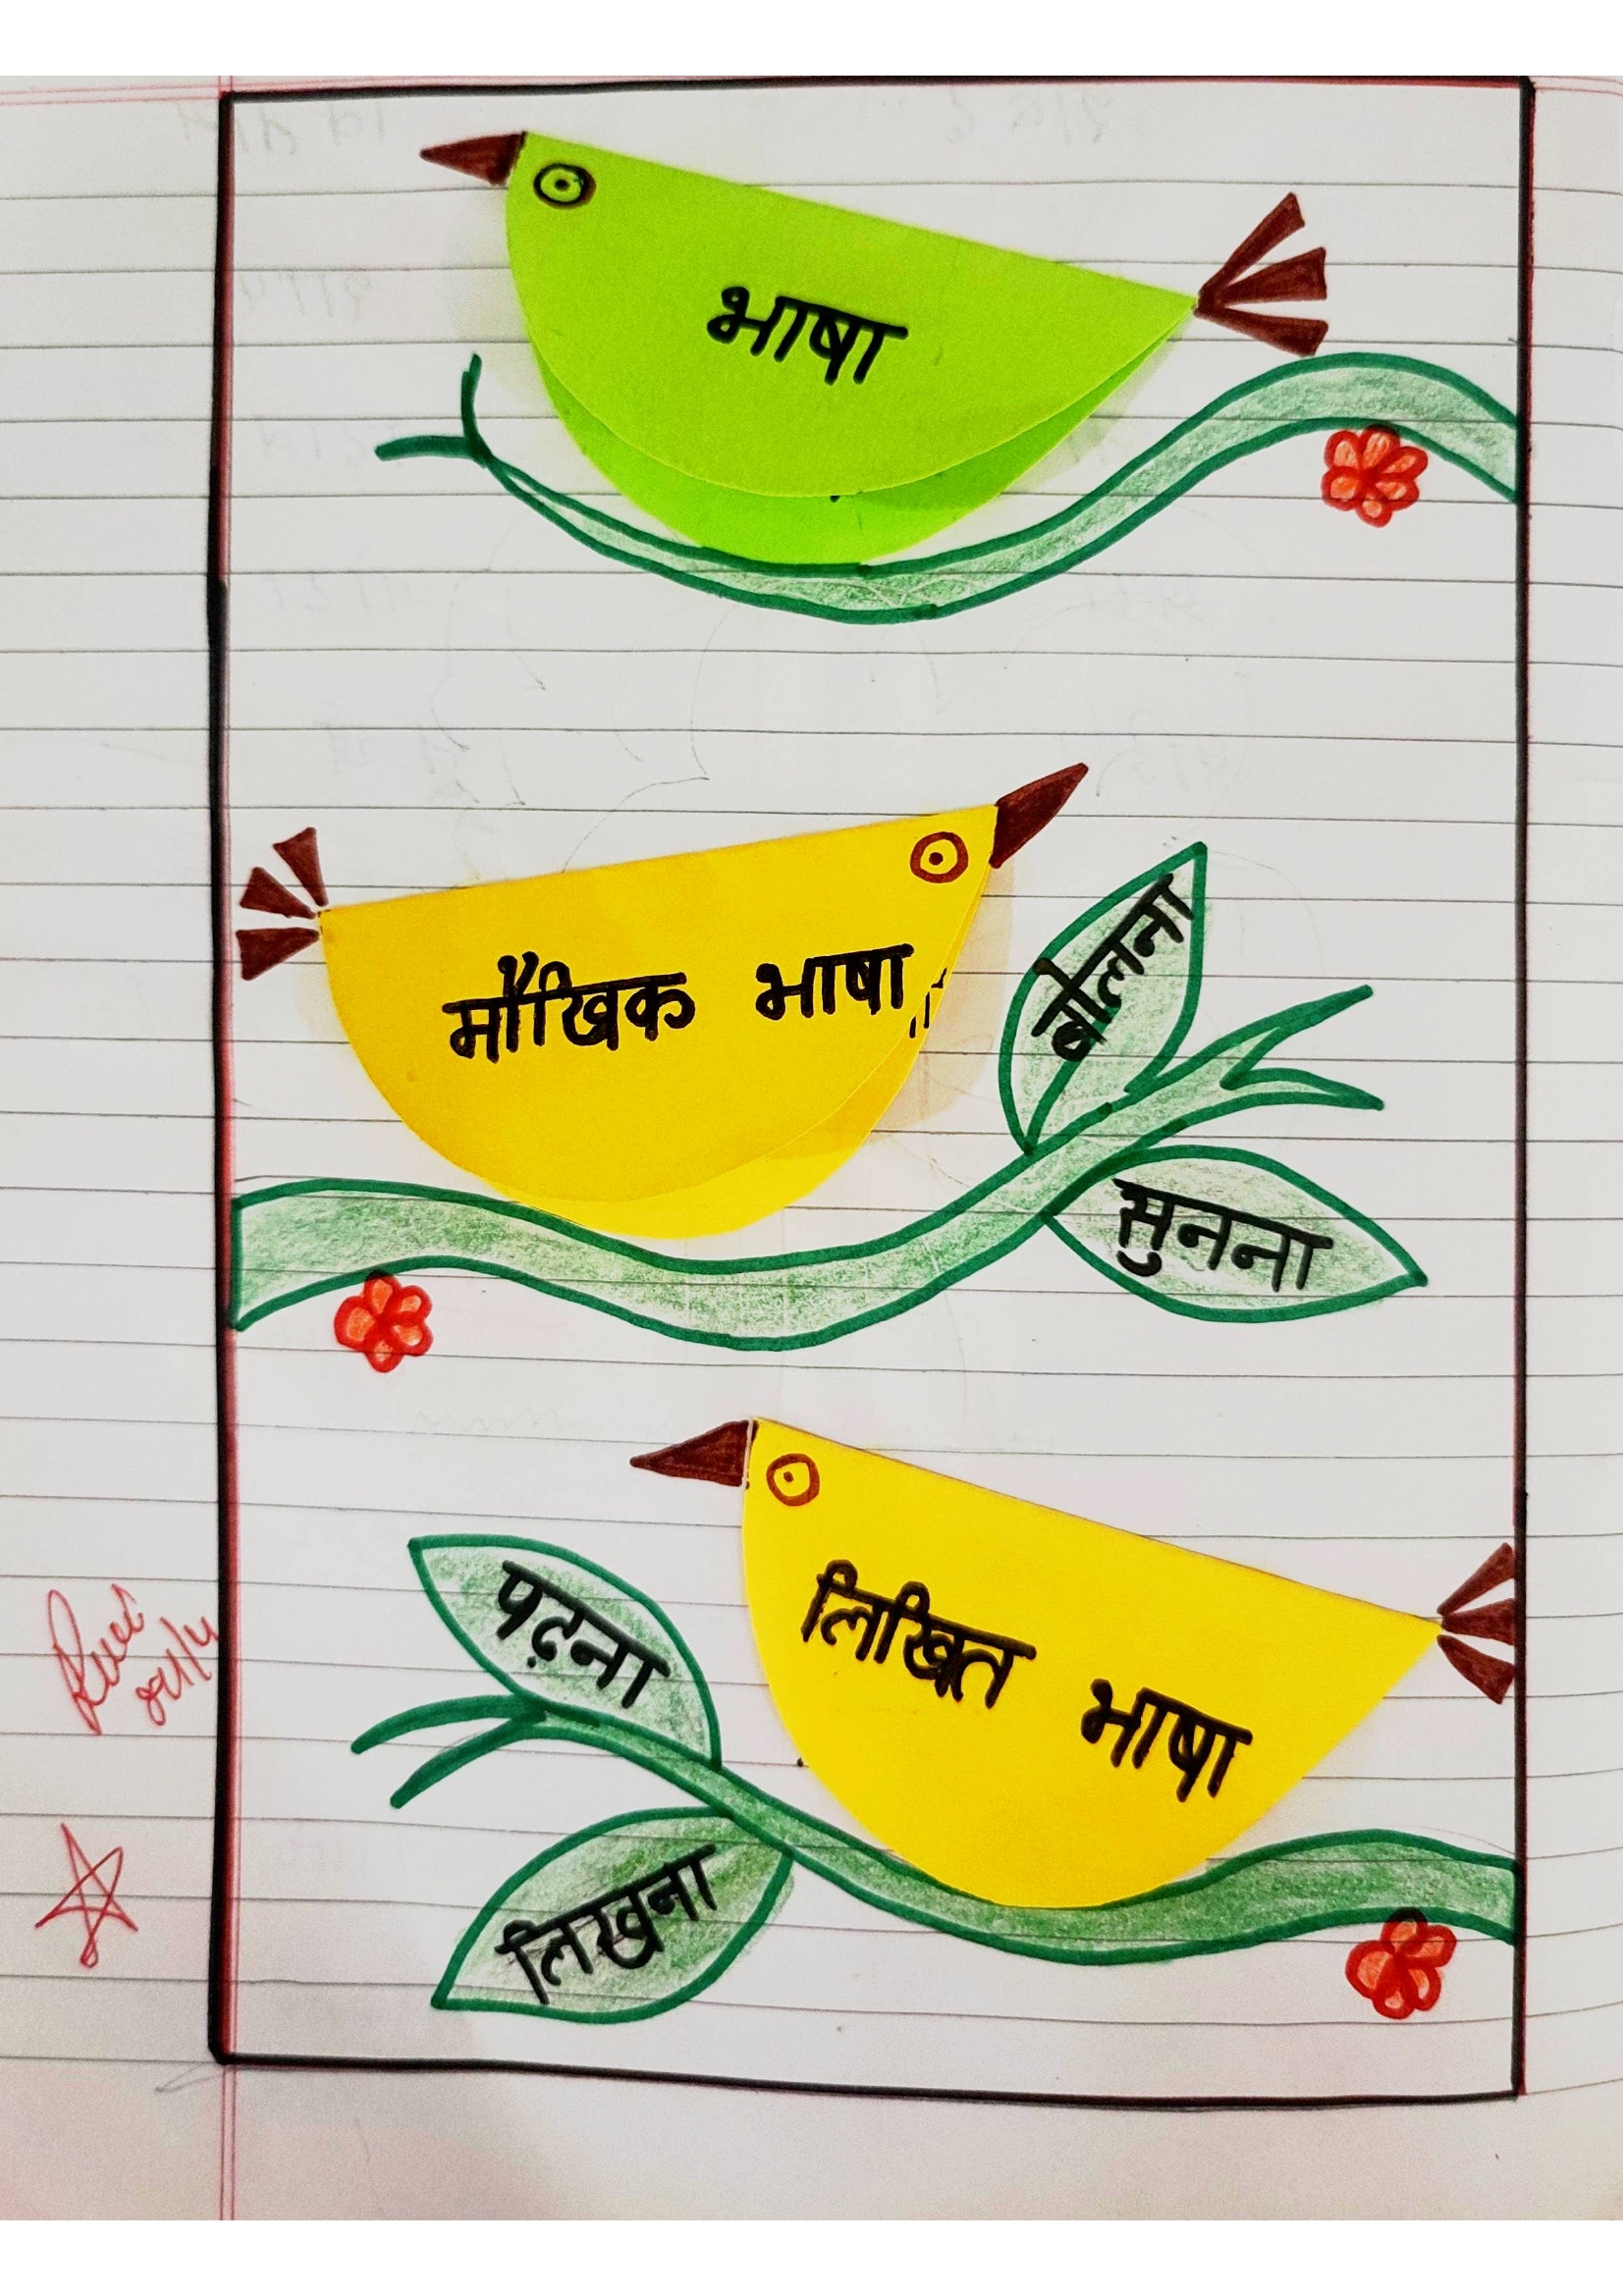 भाषा
मौखिक भाषा
बोलना
सुनना
पढ़ना
लिखित भाषा
लिखना